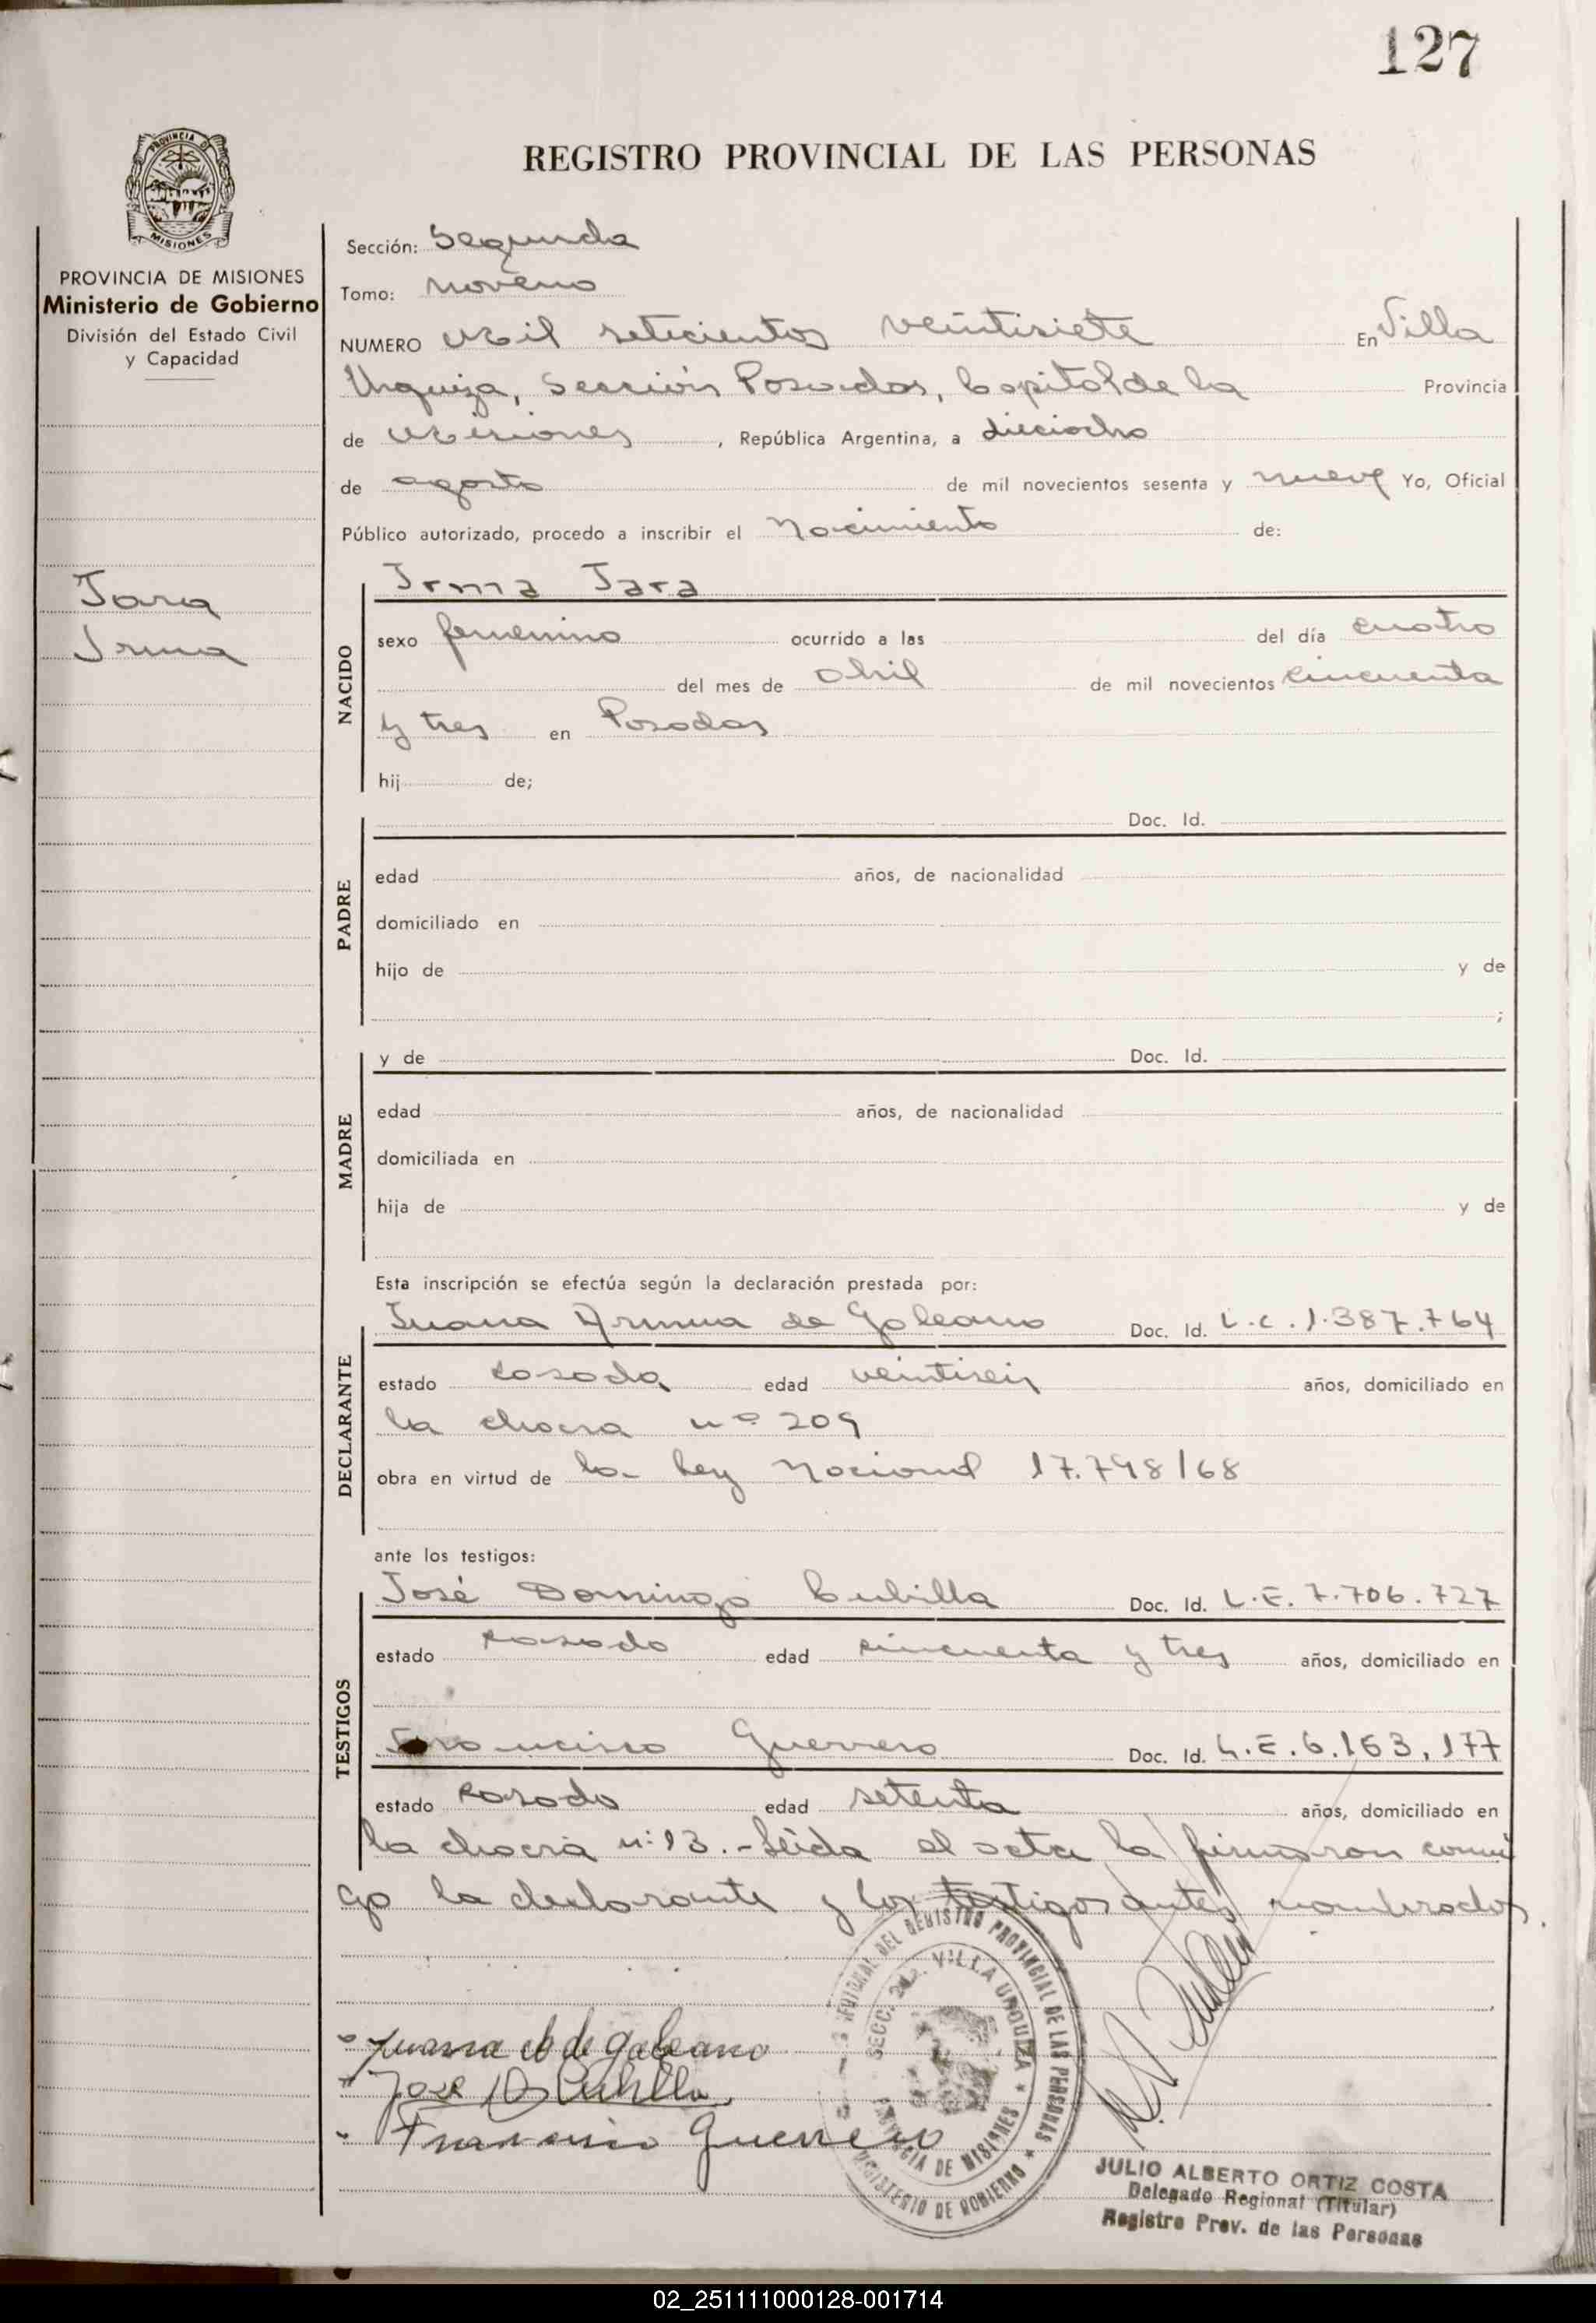 127
REGISTRO PROVINCIAL DE LAS PERSONAS
PROVINCIA DE MISIONES
Ministerio de Gobierno
División del Estado Civil
y Capacidad
Jara
Irma
Sección: Segunda
Tomo: Noveno
NUMERO Mil setecientos veintisiete En Villa
Urquiza, Sección Posadas, Capital de la Provincia
de Misiones, República Argentina, a dieciocho
de agosto de mil novecientos sesenta y nueve Yo, Oficial
Público autorizado, procedo a inscribir el Nacimiento de:
NACIDO
Irma Jara
sexo femenino ocurrido a las del día cuatro
del mes de abril de mil novecientos cincuenta
y tres en Posadas
hij de;
PADRE
Doc. Id.
edad años, de nacionalidad
domiciliado en
hijo de y de
;
MADRE
y de Doc. Id.
edad años, de nacionalidad
domiciliada en
hija de y de
Esta inscripción se efectúa según la declaración prestada por:
DECLARANTE
Juana de Galeano Doc. Id. L.C. 1.387.764
estado casada edad veintiseis años, domiciliado en
la chacra nº 209
obra en virtud de la Ley Nacional 17.798/68
ante los testigos:
TESTIGOS
José Domingo Cubilla Doc. Id. L.E. 7.706.727
estado casado edad cincuenta y tres años, domiciliado en
Francisco Guerrero Doc. Id. L.E. 6.163.177
estado casado edad setenta años, domiciliado en
la chacra nº 13.- Leída el acta la firmaron conmi
go la declarante y los testigos antes nombrados.
Juana de Galeano
José D Cubilla
Francisco Guerrero
DEL REGISTRO PROVINCIAL DE LAS PERSONAS
SECC. 2da. VILLA URQUIZA
PROVINCIA DE MISIONES
MINISTERIO DE GOBIERNO
JULIO ALBERTO ORTIZ COSTA
Delegado Regional (Titular)
Registro Prov. de las Personas
02_251111000128-001714